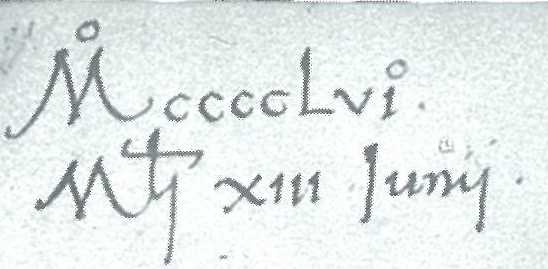 M°ccccLvi°.
Mtij xiii Junij.